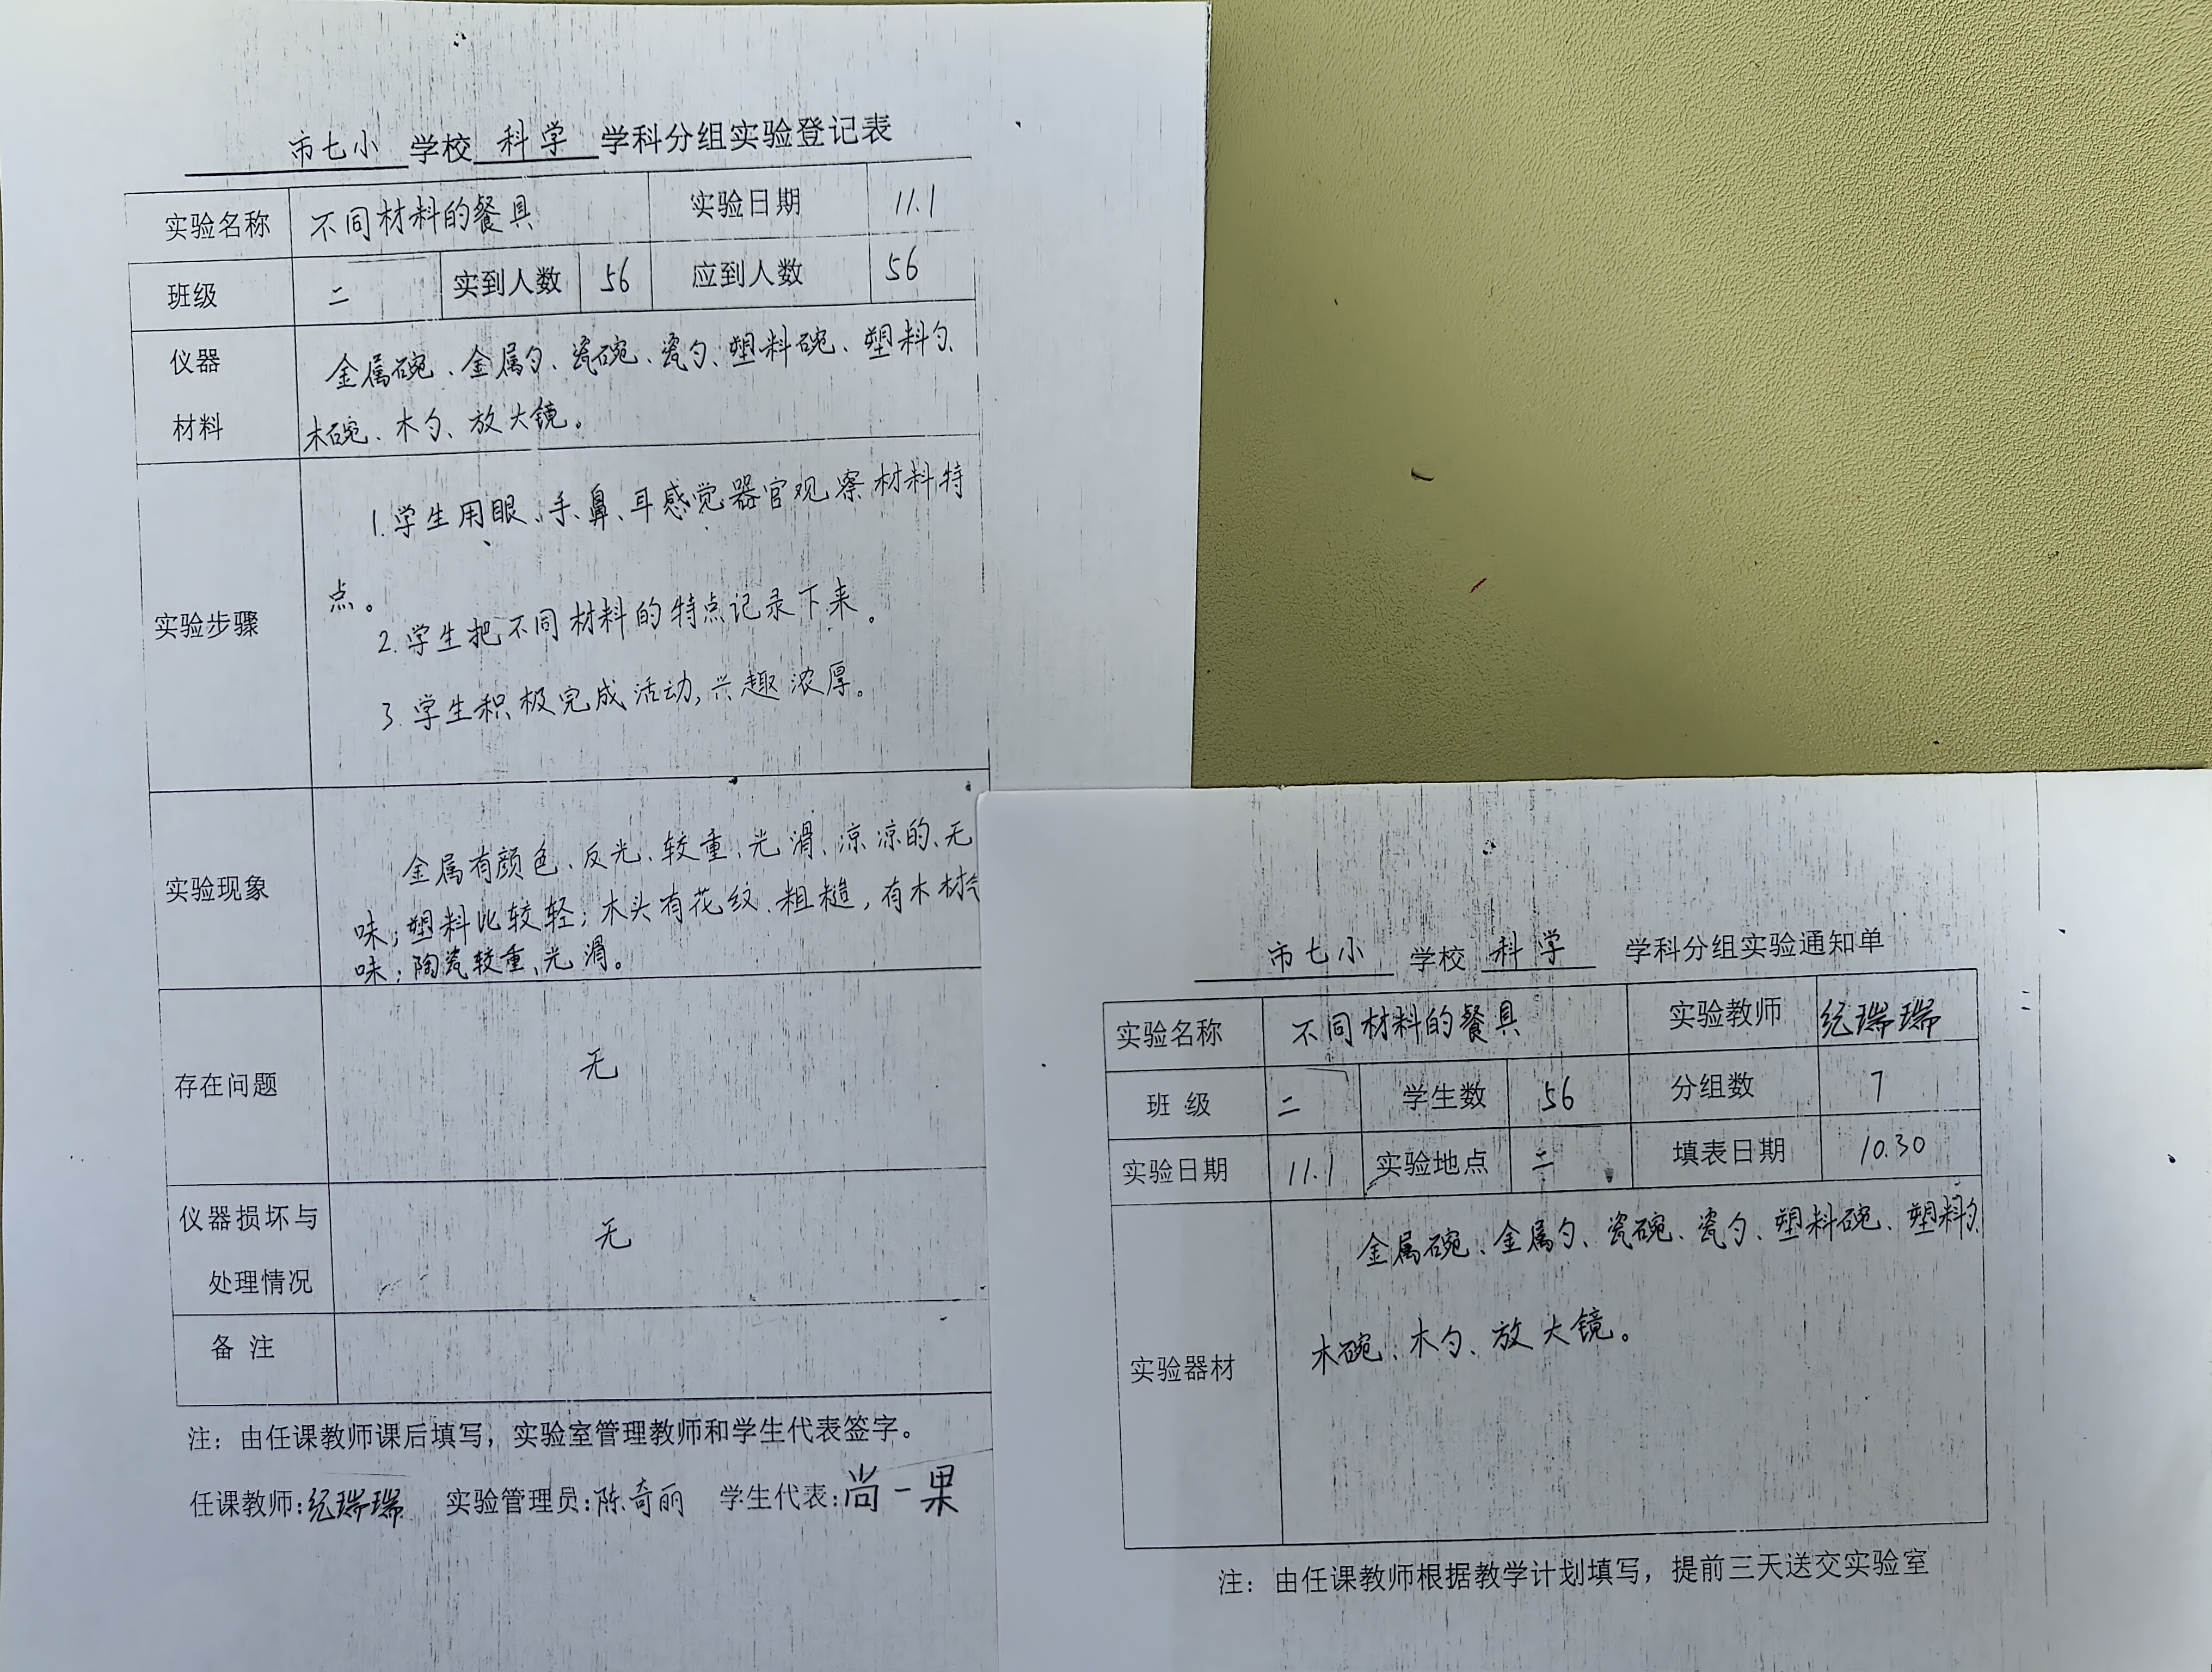 市七小 学校 科学 学科分组实验登记表
实验名称 不同材料的餐具 实验日期 11.1
班级 二 实到人数 56 应到人数 56
仪器
材料
金属碗、金属勺、瓷碗、瓷勺、塑料碗、塑料勺、
木碗、木勺、放大镜。
实验步骤
1.学生用眼、手、鼻、耳感觉器官观察材料特
点。
2.学生把不同材料的特点记录下来。
3.学生积极完成活动,兴趣浓厚。
实验现象
金属有颜色、反光、较重、光滑、凉凉的、无
味;塑料比较轻;木头有花纹、粗糙,有木材
味;陶瓷较重、光滑。
存在问题 无
仪器损坏与
处理情况
无
备 注
注:由任课教师课后填写,实验室管理教师和学生代表签字。
任课教师:纪瑞瑞 实验管理员:陈奇丽 学生代表:尚一果
市七小 学校 科学 学科分组实验通知单
实验名称 不同材料的餐具 实验教师 纪瑞瑞
班 级 二 学生数 56 分组数 7
实验日期 11.1 实验地点 二 填表日期 10.30
实验器材
金属碗、金属勺、瓷碗、瓷勺、塑料碗、塑料勺、
木碗、木勺、放大镜。
注:由任课教师根据教学计划填写,提前三天送交实验室